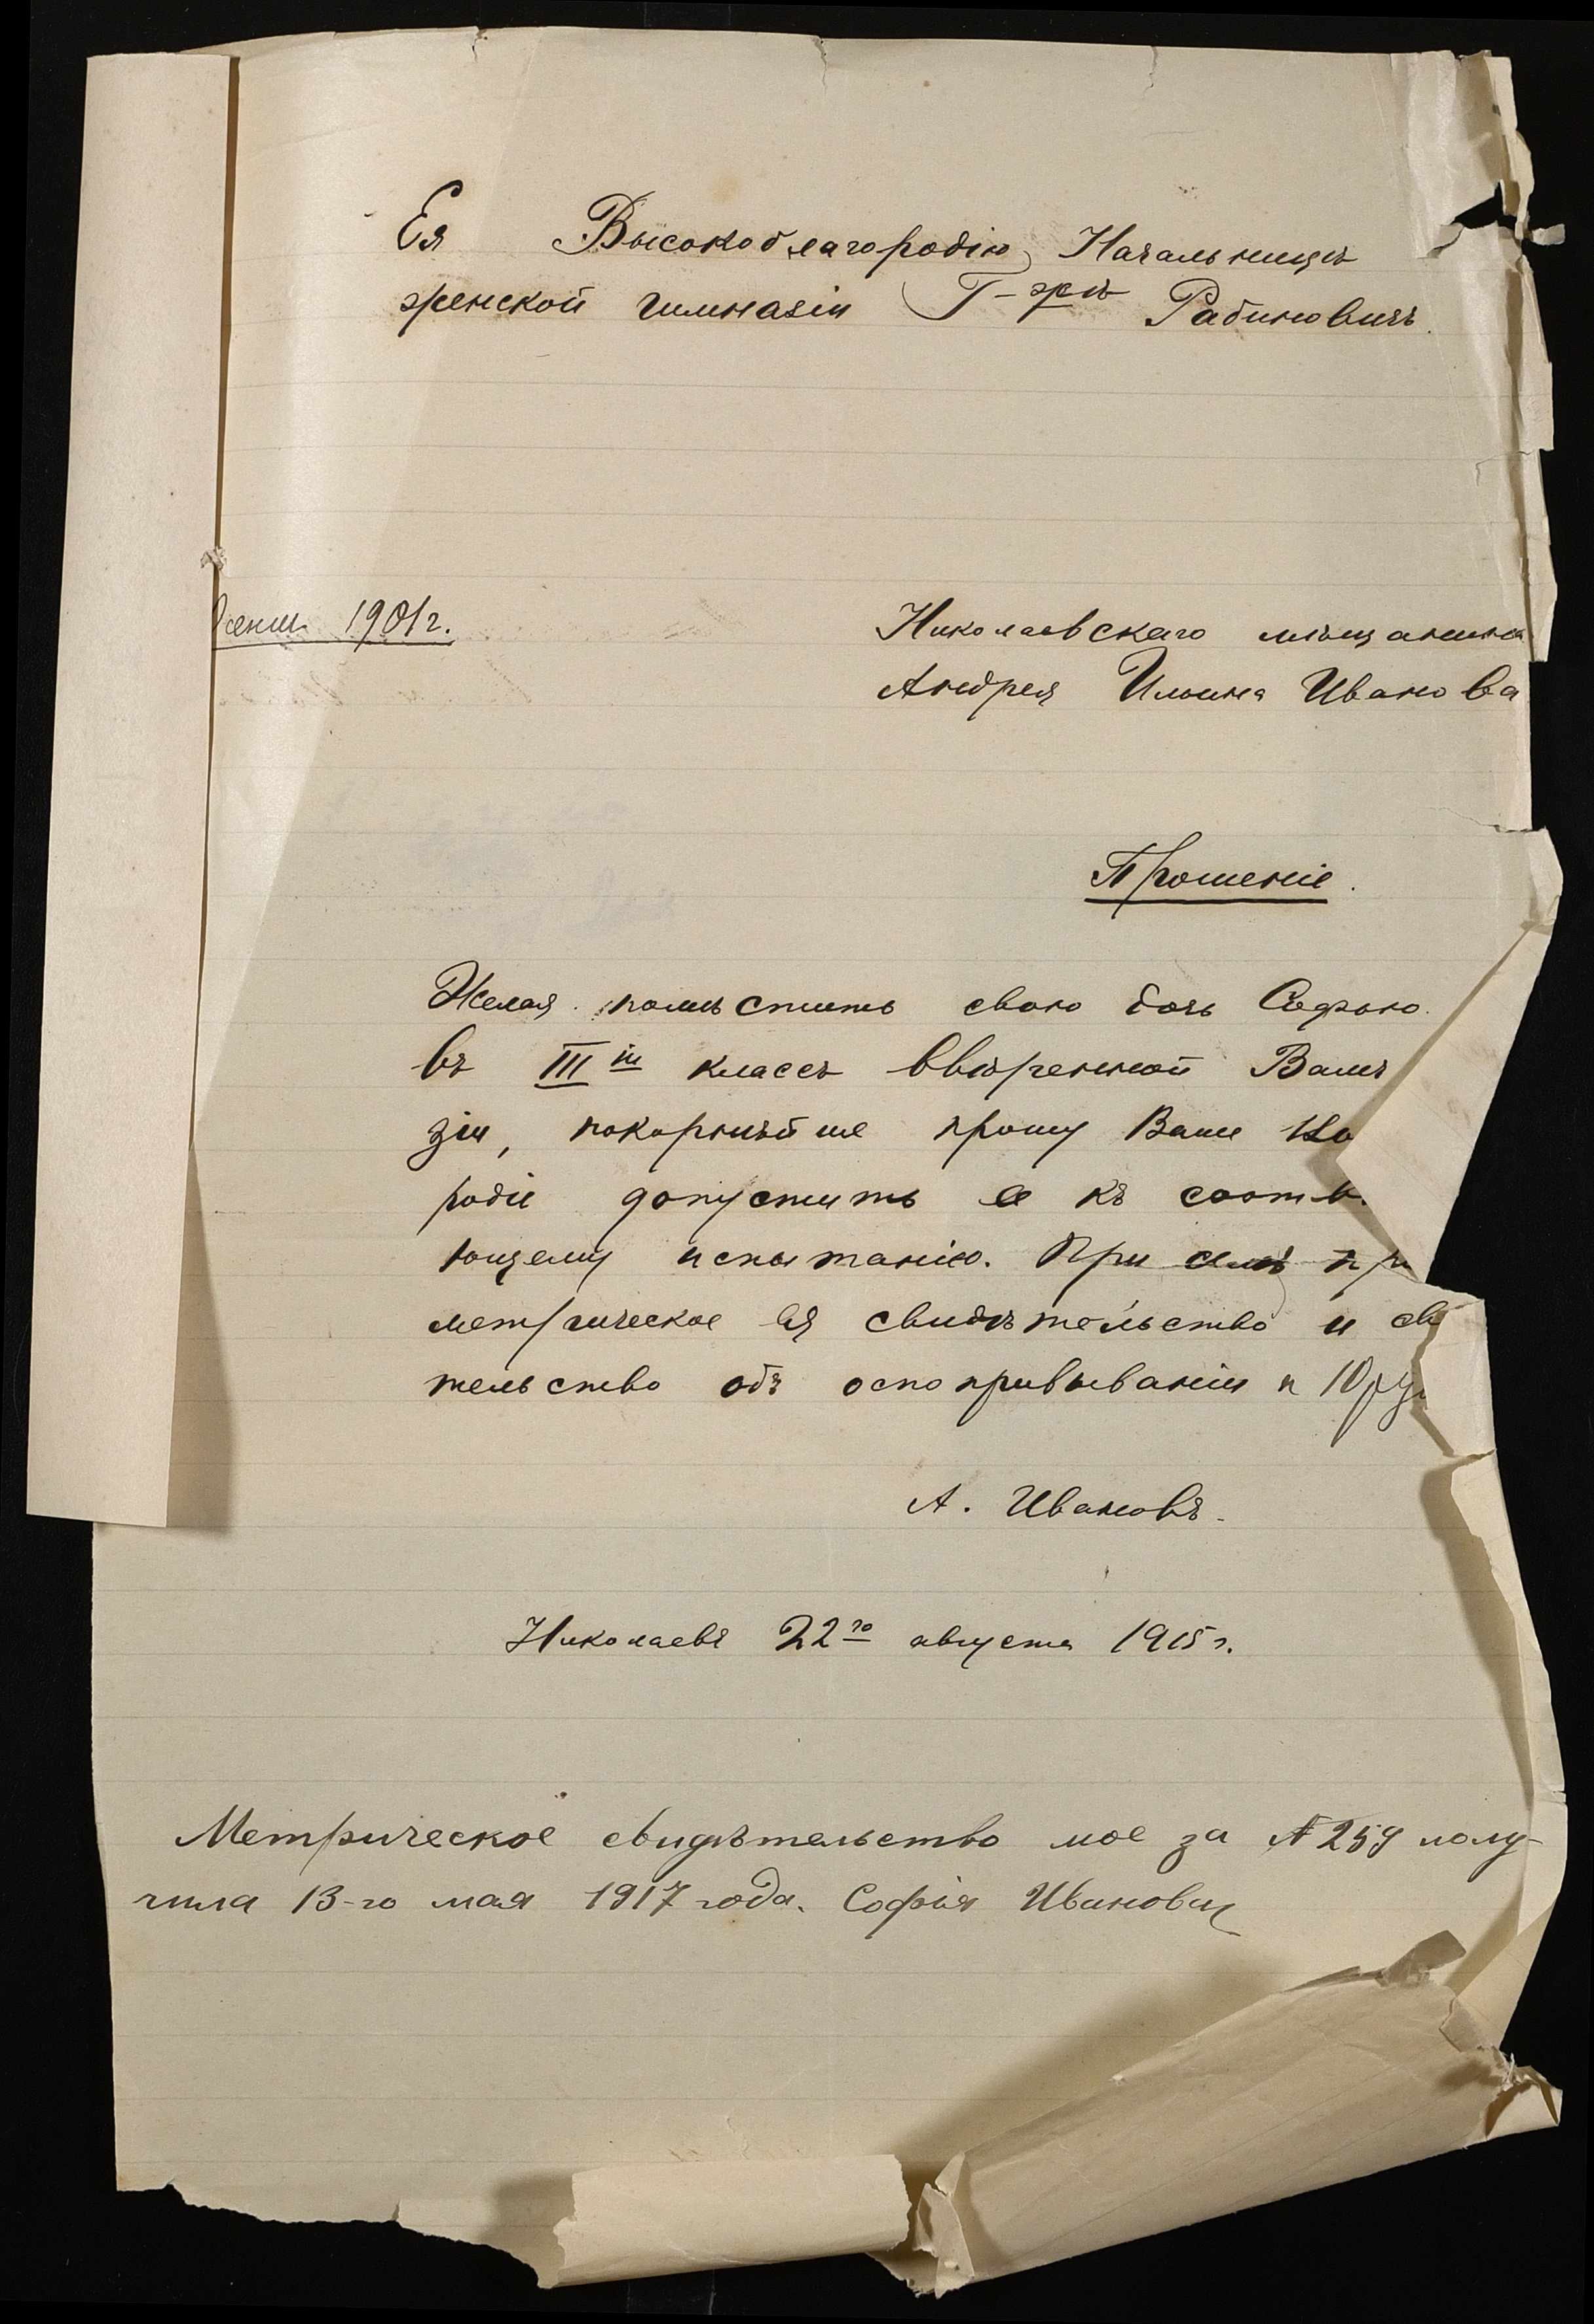 Ея Высокоблагородію Начальницѣ
женской гимназіи Г-жѣ Рабиновичъ.
1901 г.
Николаевскаго мѣщанина
Андрея Ильина Иванова
Прошеніе.
Желая помѣстить свою дочь Софью
въ III й классъ ввѣренной Вамъ
зіи, покорнѣйше прошу Ваше
родіе допустить ее къ соотв
ющему испытанію. При семъ пр
метрическое ея свидѣтельство и св
тельство объ оспопрививаніи и 10 ру
А. Ивановъ.
Николаевъ 22го августа 1915 г.
Метрическое свидѣтельство мое за № 259 полу-
чила 13-го мая 1917 года. Софія Иванова